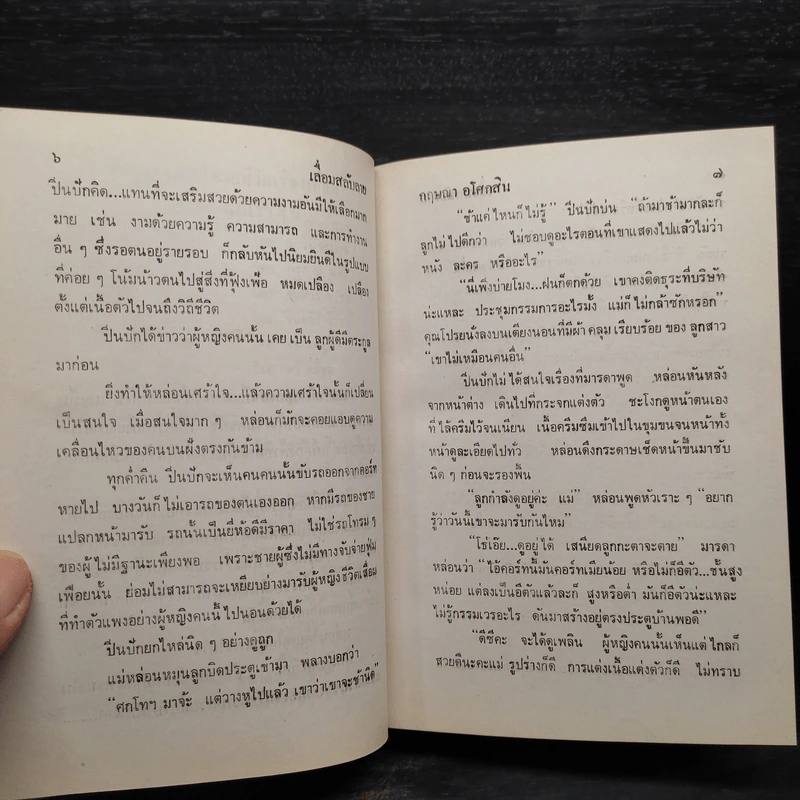 ๖
เลื่อมสลับลาย
ปิ่นปักคิด...แทนที่จะเสริมสวยด้วยความงามอันมีให้เลือกมาก
มาย เช่น งามด้วยความรู้ ความสามารถ และการทำงาน
อื่น ๆ ซึ่งรอตนอยู่รายรอบ ก็กลับหันไปนิยมยินดีในรูปแบบ
ที่ค่อย ๆ โน้มน้าวตนไปสู่สิ่งที่ฟุ้งเฟ้อ หมดเปลือง เปลือง
ตั้งแต่เนื้อตัวไปจนถึงวิถีชีวิต
ปิ่นปักได้ข่าวว่าผู้หญิงคนนั้น เคย เป็น ลูกผู้ดีมีตระกูล
มาก่อน
ยิ่งทำให้หล่อนเศร้าใจ...แล้วความเศร้าใจนั้นก็เปลี่ยน
เป็นสนใจ เมื่อสนใจมาก ๆ หล่อนก็มักจะคอยแอบดูความ
เคลื่อนไหวของคนบนฝั่งตรงกันข้าม
ทุกค่ำคืน ปิ่นปักจะเห็นคนคนนั้นขับรถออกจากคอร์ท
หายไป บางวันก็ไม่เอารถของตนเองออก หากมีรถของชาย
แปลกหน้ามารับ รถนั้นเป็นยี่ห้อดีมีราคา ไม่ใช่รถโทรม ๆ
ของผู้ไม่มีฐานะเพียงพอ เพราะชายผู้ซึ่งไม่มีทางจับจ่ายฟุ่ม
เฟือยนั้น ย่อมไม่สามารถจะเหยียบย่างมารับผู้หญิงชีวิตเสื่อม
ที่ทำตัวแพงอย่างผู้หญิงคนนี้ไปนอนด้วยได้
ปิ่นปักยกไหล่นิด ๆ อย่างดูถูก
แม่หล่อนหมุนลูกบิดประตูเข้ามา พลางบอกว่า
“ศกโทฯ มาจ้ะ แต่วางหูไปแล้ว เขาว่าเขาจะช้านิด”
กฤษณา อโศกสิน
๗
“ช้าแค่ไหนก็ไม่รู้” ปิ่นปักบ่น “ถ้ามาช้ามากละก็
ลูกไม่ไปดีกว่า ไม่ชอบดูอะไรตอนที่เขาแสดงไปแล้วไม่ว่า
หนัง ละคร หรืออะไร”
“นี่เพิ่งบ่ายโมง...ฝนก็ตกด้วย เขาคงติดธุระที่บริษัท
น่ะแหละ ประชุมกรรมการอะไรมั้ง แม่ก็ไม่กล้าซักหรอก”
คุณโปรยนั่งลงบนเตียงนอนที่มีผ้า คลุม เรียบร้อย ของ ลูกสาว
“เขาไม่เหมือนคนอื่น”
ปิ่นปักไม่ได้สนใจเรื่องที่มารดาพูด หล่อนหันหลัง
จากหน้าต่าง เดินไปที่กระจกแต่งตัว ชะโงกดูหน้าตนเอง
ที่ไล้ครีมไว้จนเนียน เนื้อครีมซึมเข้าไปในขุมขนจนหน้าทั้ง
หน้าดูละเอียดไปทั่ว หล่อนดึงกระดาษเช็ดหน้าขึ้นมาซับ
นิด ๆ ก่อนจะรองพื้น
“ลูกกำลังดูอยู่ค่ะ แม่” หล่อนพูดหัวเราะ ๆ “อยาก
รู้ว่าวันนี้เขาจะมารับกันไหม”
“โธ่เอ๊ย...ดูอยู่ได้ เสนียดลูกกะตาจะตาย” มารดา
หล่อนว่า “ไอ้คอร์ทนี้มันคอร์ทเมียน้อย หรือไม่ก็อีตัว...ชั้นสูง
หน่อย แต่ลงเป็นอีตัวแล้วละก็ สูงหรือต่ำ มันก็อีตัวน่ะแหละ
ไม่รู้กรรมเวรอะไร ดันมาสร้างอยู่ตรงประตูบ้านพอดี”
“ดีซีคะ จะได้ดูเพลิน ผู้หญิงคนนั้นเห็นแต่ไกลก็
สวยดีนะคะแม่ รูปร่างก็ดี การแต่งเนื้อแต่งตัวก็ดี ไม่ทราบ